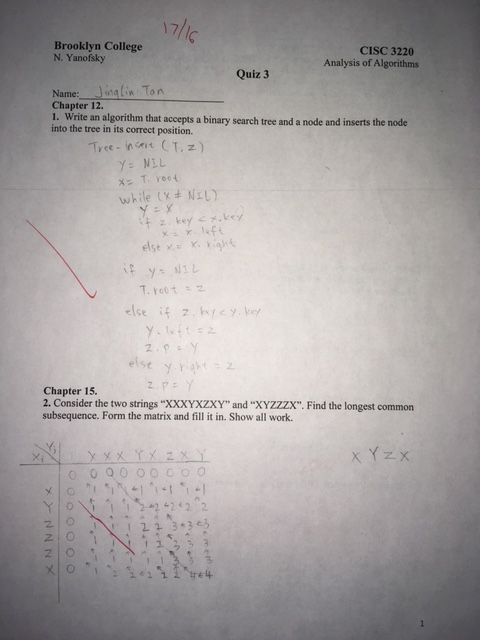 17/16
Brooklyn College
CISC 3220
N. Yanofsky
Analysis of Algorithms
Quiz 3
Name: Jinglin Tan
Chapter 12.
1. Write an algorithm that accepts a binary search tree and a node and inserts the node
into the tree in its correct position.
Tree-Insert (T, z)
Y = NIL
X = T. root
while (X ≠ NIL)
Y = X
if z. key < x. key
x = x. left
else x = x. right
if y = NIL
T. root = z
else if z. key < y. key
y. left = z
z. p = y
else y. right = z
z. p = y
Chapter 15.
2. Consider the two strings “XXXYXZXY” and “XYZZZX”. Find the longest common
subsequence. Form the matrix and fill it in. Show all work.
X Y Z X
X X X Y X Z X Y
0 0 0 0 0 0 0 0
X 0
Y 0
Z 0
Z 0
Z 0
X 0
1